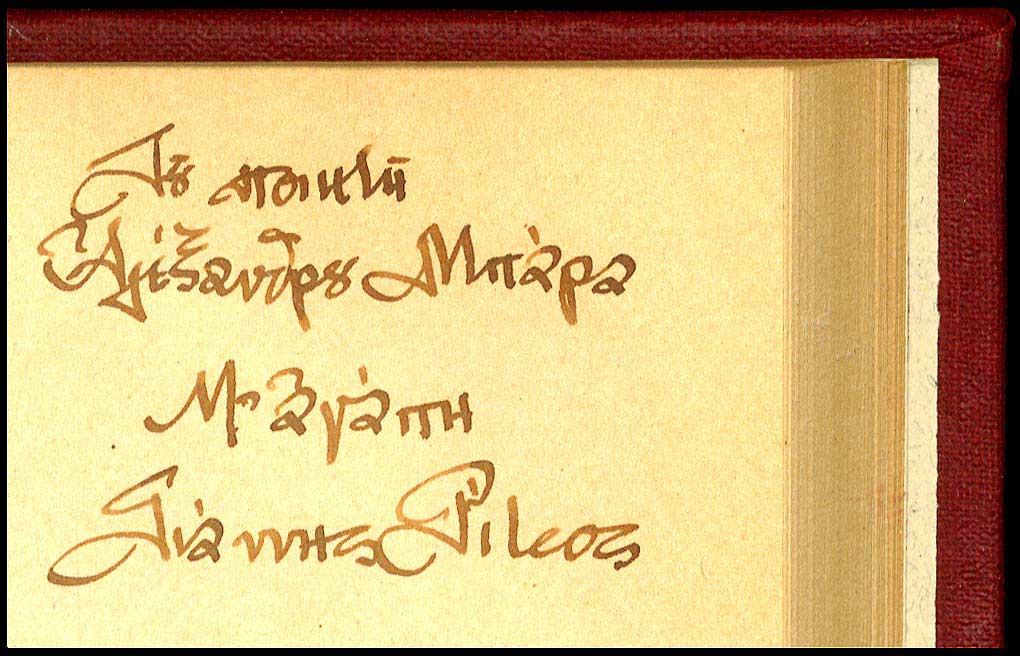 Τοῦ ποιητῆ
Ἀλέξανδρου Μπάρα
Μὲ ἀγάπη
Γιάννης Ρίτσος